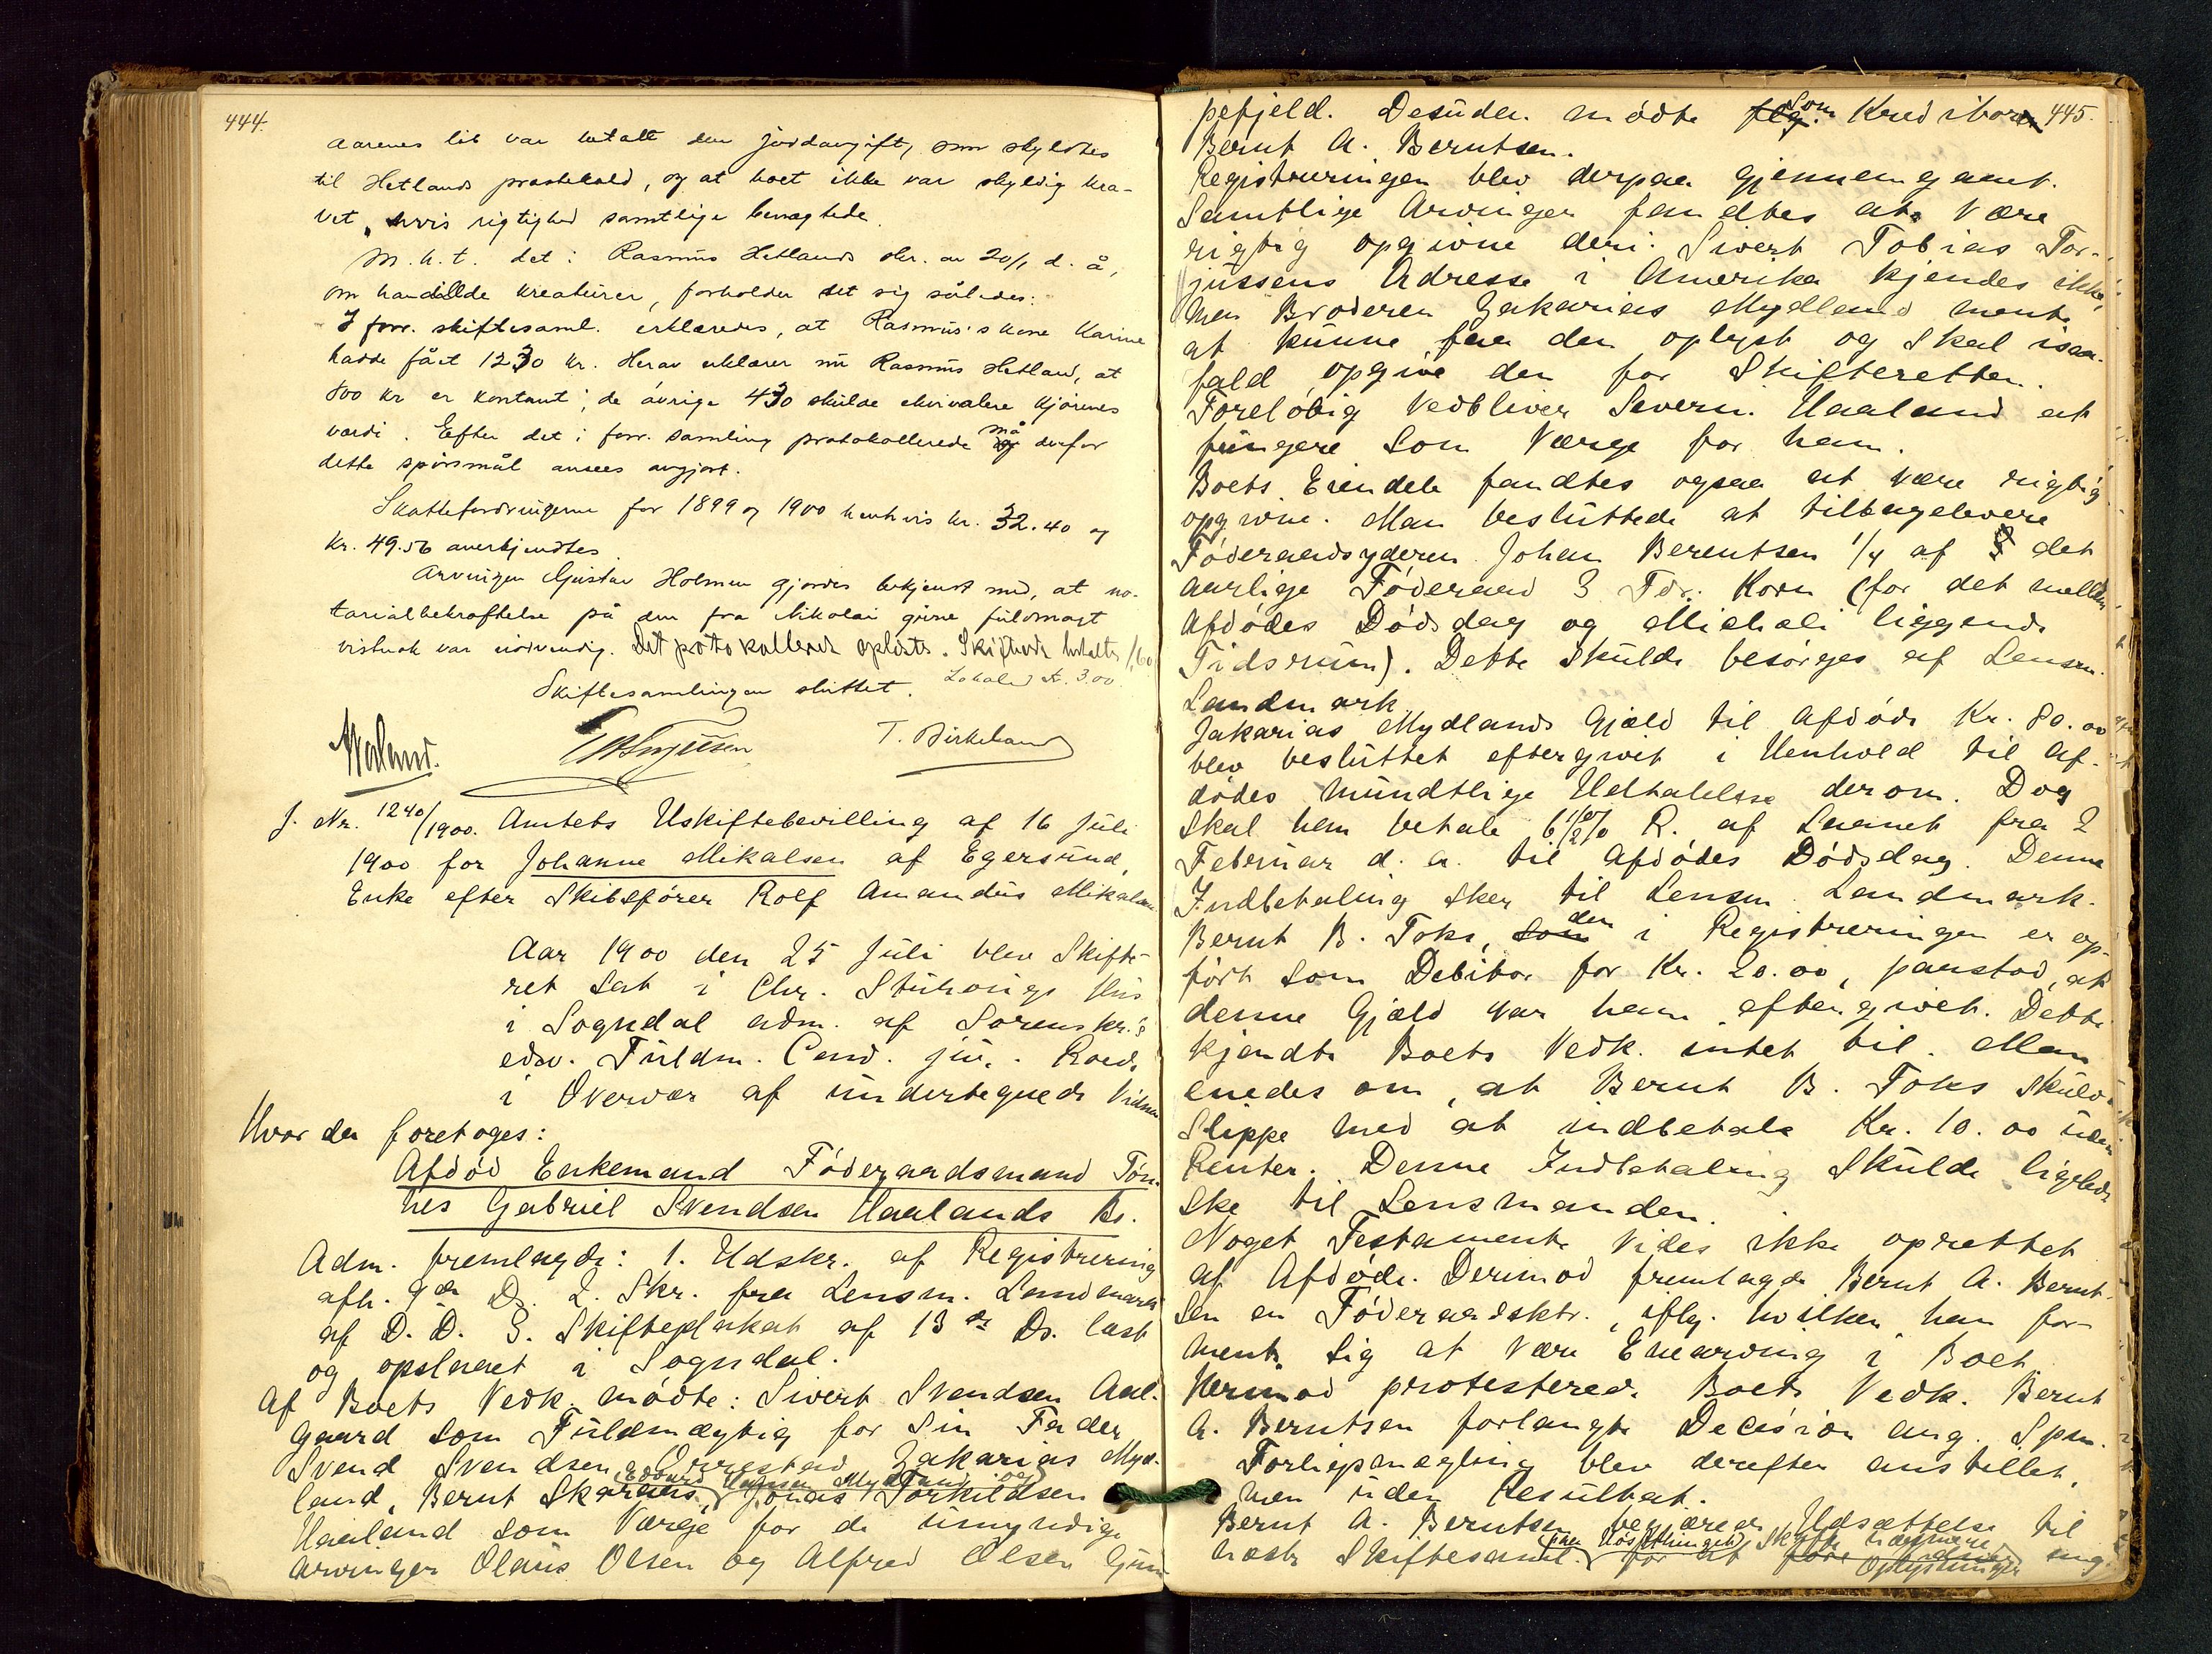 444.
aarenes lib var betalt den jordavgift, som skyldtes
til Hetlands prestekald, og at boet ikke var skyldig kra-
vet, hvis rigtighed samtlige benegtede.
M. h. t. det i Rasmus Hetlands skr. av 20/1 d. å,
om handillde kreaturer, forholder det sig således:
I forr. skiftesaml. erklæredes, at Rasmus's kone Karine
hadde fåt 1230 kr. Herav erklærer nu Rasmus Hetland, at
800 kr er kontant; de øvrige 430 skulde ekvivalere kjørenes
værdi. Efter det i forr. samling protokollerede må derfor
dette spørsmål ansees avgjort.
Skattefordringerne for 1899 og 1900 henhvis kr. 32.40 og
Kr. 49.56 anerkjendtes.
Arvingen Gustav Holmen gjordes bekjendt med, at no-
tarialbekræftelse på den fra Nikolai givne fuldmagt
vistnok var nødvendig. Det protokollerede oplæstes. Skiftevidr betaltes 1,60
Skiftesamlingen sluttet. Lokaled kr. 3.00.
Haland. T. Birkeland
J. Nr. 1240/1900. Amtets Uskiftebevilling af 16 Juli
1900 for Johanne Mikalsen af Egersund,
Enke efter Skibsfører Rolf Amandus Mikalsen
Aar 1900 den 25 Juli blev Skifte-
ret sat i Chr. Stuhaugs Hus
i Sogndal adm. af Sorenskr.s
edsv. Fuldm. Cand. jur. Roed,
i Overvær af undertegnede Vidner
Hvor da foretoges:
Afdød Enkemand Føderaadsmand Tøn-
nes Gabriel Svendsen Haalands Bo.
Adm. fremlagde: 1. Udskr. af Registrering
afh. 9de Ds. 2. Skr. fra Lensm. Landmark
af D. D. 3. Skifteplakat af 13de Ds. læst
og opslaaet i Sogndal.
Af Boets Vedk. mødte: Sivert Svendsen Aal-
gaard som Fuldmægtig for sin Fader
Svend Svendsen Orrestad Zakarias Myd-
land, Bernt Skaraas, Edvard Hansen Mydland og Jonas Torkildsen
Haaland som Værge for de umyndige
Arvinger Olaus Olsen og Alfred Olsen Gun
445.
pefjeld. Desuden mødte flg. som Kreditorer
Bernt A. Berntsen.
Registreringen blev derpaa gjennemgaaet.
Samtlige Arvinger fandtes at være
rigtig opgivne deri. Sivert Tobias Tor-
jussens Adresse i Amerika kjendes ikke,
men Broderen Zakarias Mydland mente
at kunne faa den oplyst og skal isaa-
fald opgive den for Skifteretten.
Foreløbig vedbliver Severin Haaland at
fungere som Værge for ham.
Boets Eiendele fandtes ogsaa at være rigtig
opgivne. Man besluttede at tilbagelevere
Føderaadsyderen Johan Berentsen 1/4 af det
aarlige Føderaad 3 Tdr. Korn (for det mellem
Afdødes Dødsdag og Michaeli liggende
Tidsrum). Dette skulde besørges af Lensm.
Landmark.
Zakarias Mydlands Gjæld til Afdøde Kr. 80.00
blev besluttet eftergivet i Henhold til Af-
dødes mundtlige Udtalelse derom. Dog
skal han betale 6 1/2 % R. af Laanet fra 2
Februar d. a. til Afdødes Dødsdag. Denne
Indbetaling sker til Lensm. Landmark.
Bernt B. Toks, som der i Registreringen er op-
ført som Debitor for Kr. 20.00, paastod, at
denne Gjæld var ham eftergivet. Dette
kjendte Boets Vedk. intet til. Man
enedes om, at Bernt B. Toks skulde
slippe med at indbetale Kr. 10.00 uden
Renter. Denne Indbetaling skulde ligeledes
ske til Lensmanden.
Noget Testamente vides ikke oprettet
af Afdøde. Derimod fremlagde Bernt A. Bernt-
sen en Føderaadsktr., iflg. hvilken han for-
mente sig at være Enearving i Boet.
Herimod protesterede Boets Vedk. Bernt
A. Berntsen forlangte Decision ang. Spm.
Forligsmægling blev derefter anstillet,
men uden Resultat.
Bernt A. Berntsen begjærede Udsættelse til
næste Skiftesaml. (paa Høstthinget) for at skaffe nærmere Oplysninger ang.